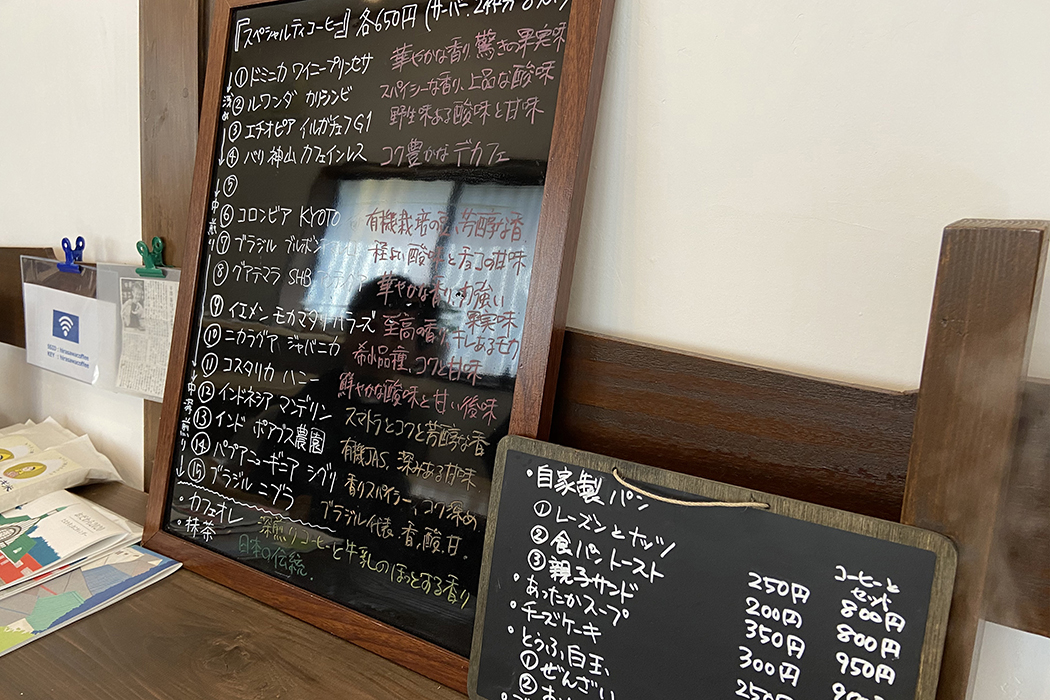 『スペシャルティコーヒー』各650円(サーバー2杯分
①ドミニカ ワイニープリンセサ 華やかな香り、驚きの果実味
②ルワンダ カリシンビ スパイシーな香り、上品な酸味
③エチオピア イルガチェフG1 野生味ある酸味と甘味
④バリ神山カフェインレス コク豊かなデカフェ
⑤
⑥コロンビア KYOTO 有機栽培の豆、芳醇な香
⑦ブラジル ブルボン 程よい酸味とチョコの甘味
⑧グアテマラ SHB 華やかな香り、力強い果実味
⑨イエメン モカマタリ 至高の香り、キレあるモカ
⑩ニカラグア ジャバニカ 希少品種、コクと甘味
⑪コスタリカ ハニー 鮮やかな酸味と甘い後味
⑫インドネシア マンデリン スマトラとコクと芳醇な香
⑬インド ポアブス農園 有機JAS、深みある甘味
⑭パプアニューギニア シグリ 香りスパイシー、コク深め
⑮ブラジル ニブラ ブラジル代表、香、酸、甘。
・カフェオレ 深煎りコーヒーと牛乳のほっとする香り
・抹茶 日本の伝統。
浅め
中煎り
中深煎り
SSID : hirosawacoffee
KEY : hirosawacoffee
・自家製パン コーヒーとセット
①レーズンとナッツ 250円 800円
②食パントースト 200円 800円
③親子サンド 350円 950円
・あったかスープ 300円
・チーズケーキ
・とうふ白玉
①ぜんざい
②